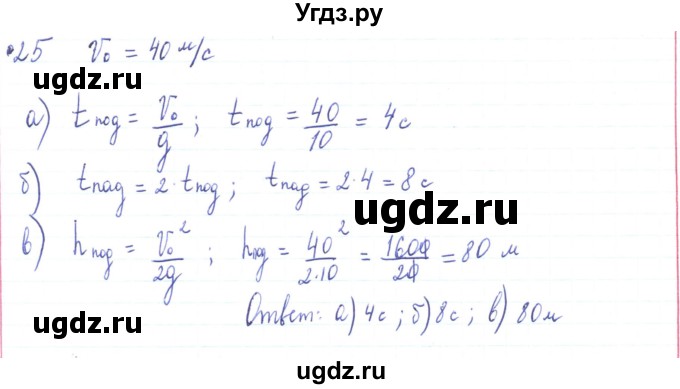 Угдз.ру
№25 V₀ = 40 м/с
ugdz.ru ugdz.ru
а) tпод = V₀/g ; tпод = 40/10 = 4 с
б) tпад = 2·tпод ; tпад = 2·4 = 8 с
ugdz.ru
в) hпод = V₀²/2g ; hпод = 40²/2·10 = 1600/20 = 80 м
Ответ: а) 4с ; б) 8с ; в) 80м
ugdz.ru ugdz.ru